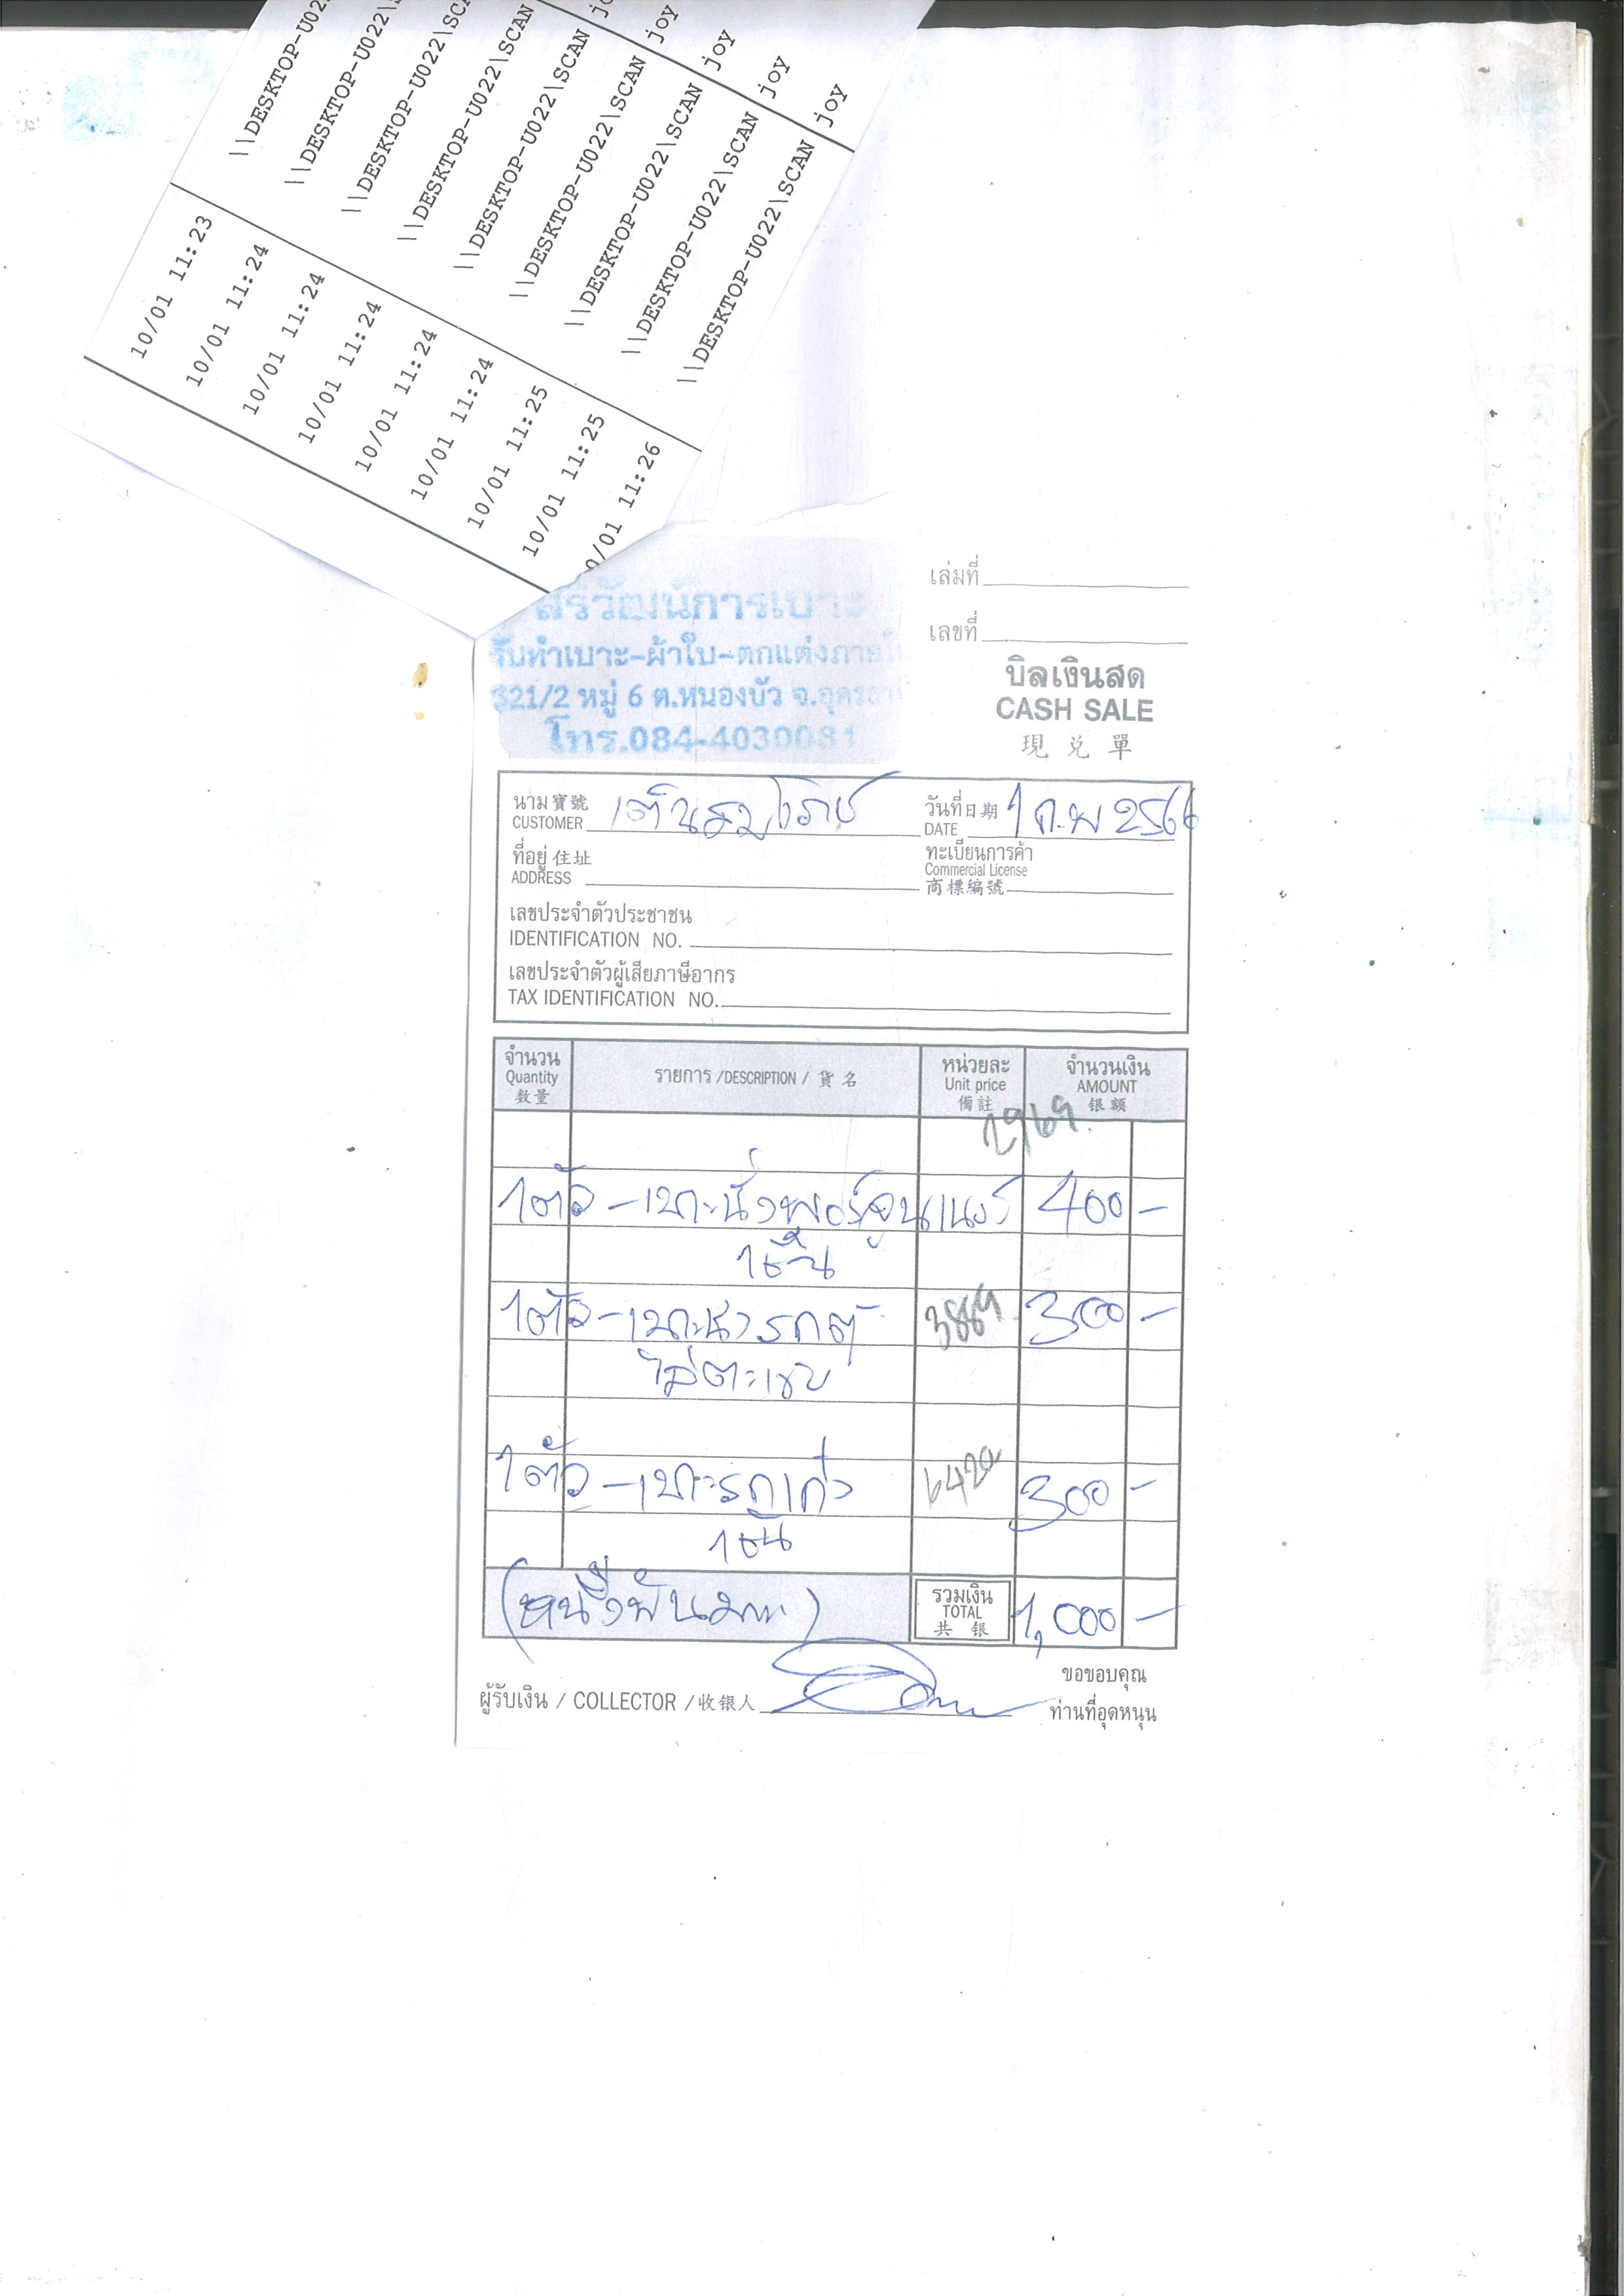 \\DESKTOP-U02
\\DESKTOP-U022\
\\DESKTOP-U022\SC
\\DESKTOP-U022\SCAN
\\DESKTOP-U022\SCAN jo
\\DESKTOP-U022\SCAN joy
\\DESKTOP-U022\SCAN joy
\\DESKTOP-U022\SCAN joy
\\DESKTOP-U022\SCAN joy
10/01 11:23
10/01 11:24
10/01 11:24
10/01 11:24
10/01 11:24
10/01 11:24
10/01 11:25
10/01 11:25
0/01 11:26
สิริวัฒน์การเบาะ
รับทำเบาะ-ผ้าใบ-ตกแต่งภายใน
321/2 หมู่ 6 ต.หนองบัว จ.อุดรธานี
โทร.084-4030031
เล่มที่
เลขที่
บิลเงินสด
CASH SALE
現兌單
นาม寶號
CUSTOMER
วันที่日期 1 ก.พ 2566
DATE
ที่อยู่住址
ADDRESS
ทะเบียนการค้า
Commercial License
商標編號
เลขประจำตัวประชาชน
IDENTIFICATION NO.
เลขประจำตัวผู้เสียภาษีอากร
TAX IDENTIFICATION NO.
จำนวน
Quantity
数量
รายการ /DESCRIPTION / 貨名
หน่วยละ
Unit price
備註
จำนวนเงิน
AMOUNT
银额
2969
1ตัว -เบาะนั่งฟอร์จูนเนอร์ 400 -
1ชิ้น
1ตัว -เบาะ รถตู้ 3889 300 -
1ตัว -เบาะรถเก๋ง 6420 300 -
1ชิ้น
(หนึ่งพันบาท)
รวมเงิน
TOTAL
共银
1,000 -
ผู้รับเงิน / COLLECTOR /收银人
ขอขอบคุณ
ท่านที่อุดหนุน